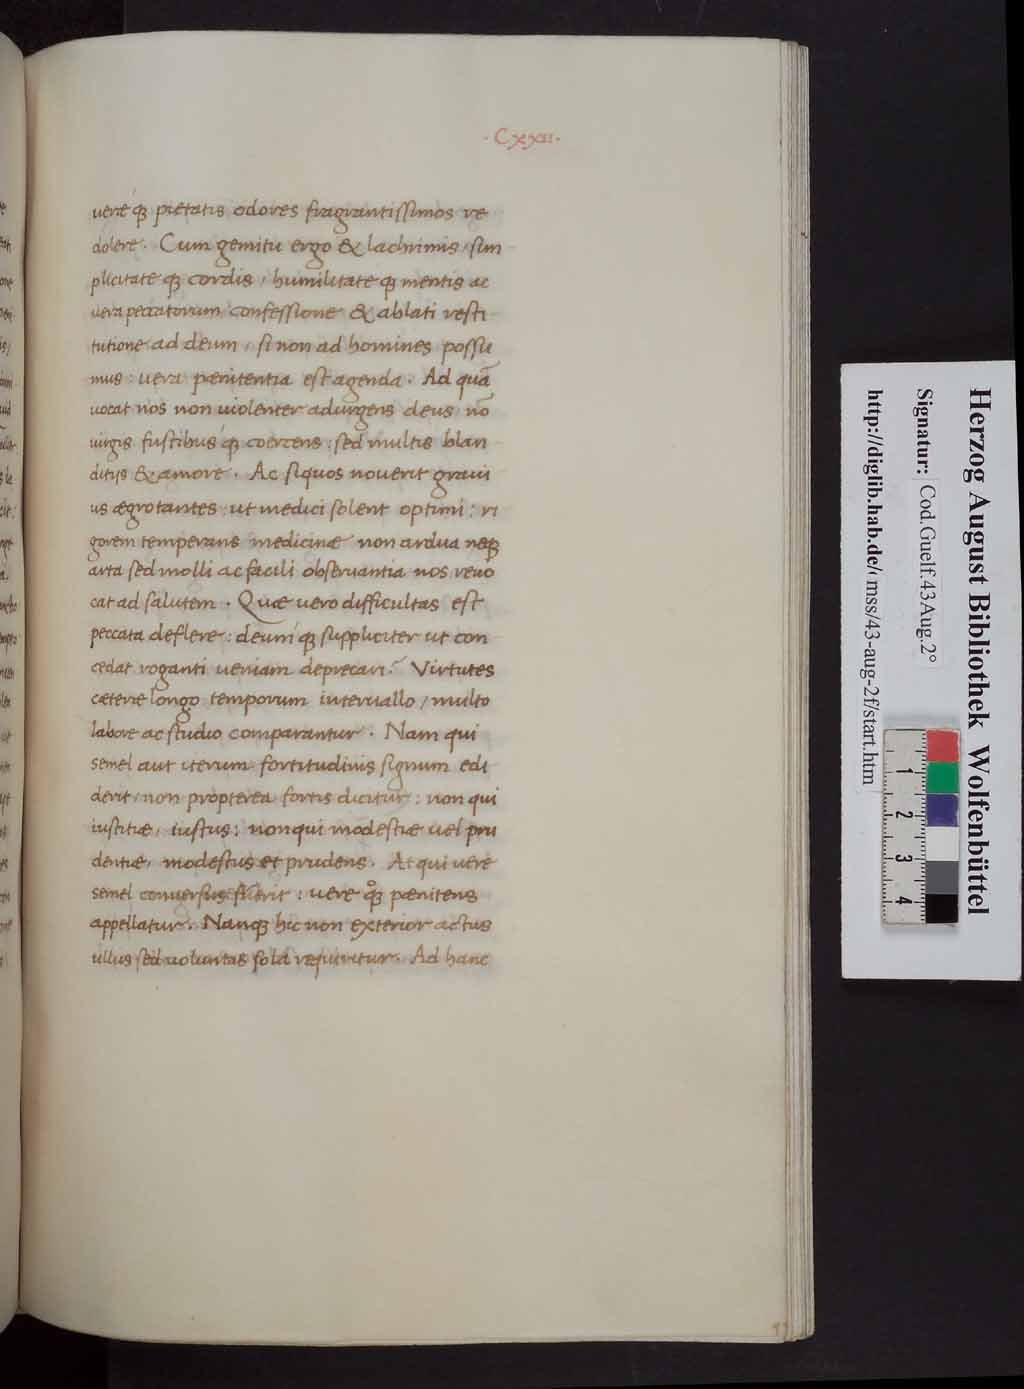 ·Cxxii·
uereq; pietatis odores fragrantissimos re
dolere. Cum gemitu ergo & lachrimis / sim
plicitate q; cordis / humilitate q; mentis ac
uera peccatorum confessione & ablati resti
tutione ad deum / si non ad homines possu
mus : uera pænitentia est agenda. Ad quā
uocat nos non uiolenter adurgens deus / nō
uirgis fustibus q; coercens : sed multis blan
ditijs & amore. Ac siquos nouerit graui
us ægrotantes : ut medici solent optimi : ri
gorem temperans medicinæ non ardua neq;
arta sed molli ac facili obseruantia nos reuo
cat ad salutem. Quæ uero difficultas est
peccata deflere : deum q; suppliciter ut con
cedat roganti ueniam deprecari? Virtutes
cæteræ longo temporum interuallo / multo
labore ac studio comparantur. Nam qui
semel aut iterum fortitudinis signum edi
derit / non propterea fortis dicitur : non qui
iustitiæ / iustus : non qui modestiæ uel pru
dentiæ / modestus et prudens. At qui uere
semel conuersus fuerit : uere qͦq; pænitens
appellatur. Nanq; hic non exterior actus
ullus sed uoluntas sola requiritur. Ad hanc
Herzog August Bibliothek Wolfenbüttel
Signatur: Cod.Guelf.43 Aug.2°
http://diglib.hab.de/mss/43-aug-2f/start.htm
1
2
3
4